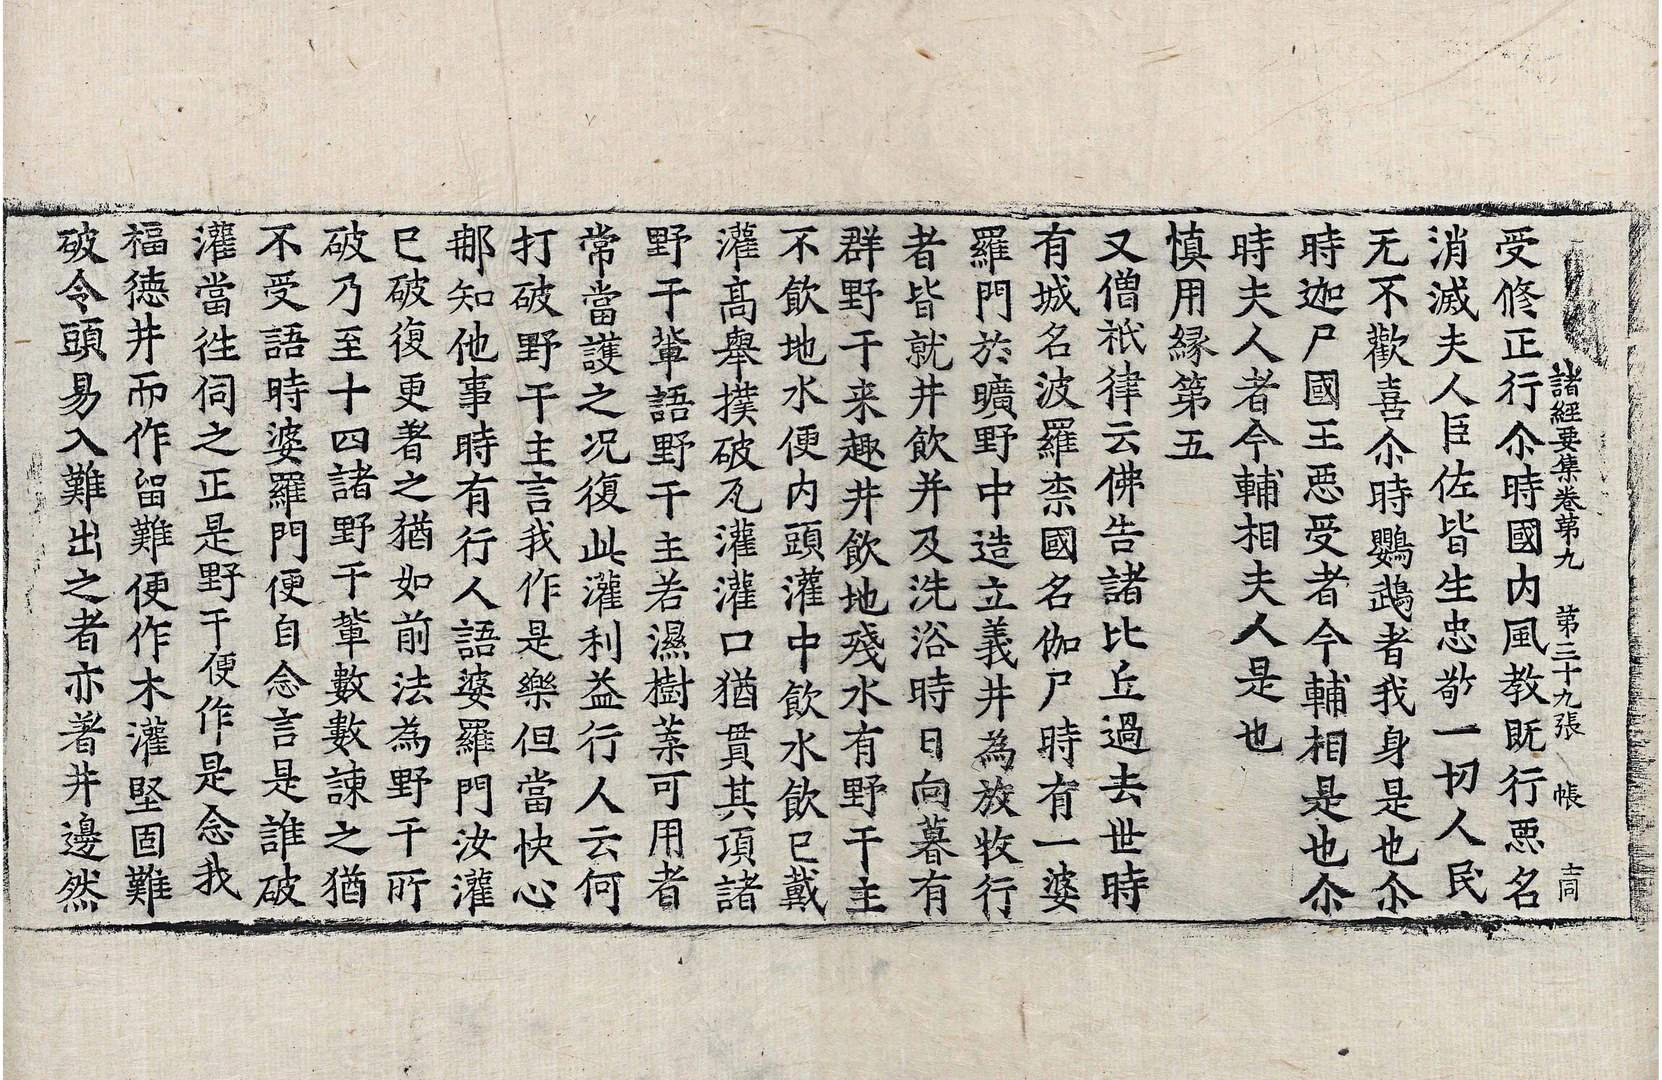 諸經要集卷第九 第三十九張 帳 士同
受修正行尒時國內風教旣行惡名
消滅夫人臣佐皆生忠敬一切人民
无不歡喜尒時鸚鵡者我身是也尒
時迦尸國王惡受者今輔相是也尒
時夫人者今輔相夫人是也
慎用緣第五
又僧祇律云佛告諸比丘過去世時
有城名波羅柰國名伽尸時有一婆
羅門於曠野中造立義井為放牧行
者皆就井飲并及洗浴時日向暮有
群野干来趣井飲地殘水有野干主
不飲地水便內頭灌中飲水飲已戴
灌高舉撲破瓦灌灌口猶貫其項諸
野干輩語野干主若濕樹葉可用者
常當護之况復此灌利益行人云何
打破野干主言我作是樂但當快心
郍知他事時有行人語婆羅門汝灌
已破復更著之猶如前法為野干所
破乃至十四諸野干輩數數諫之猶
不受語時婆羅門便自念言是誰破
灌當徃伺之正是野干便作是念我
福德井而作留難便作木灌堅固難
破令頭易入難出之者亦著井邊然